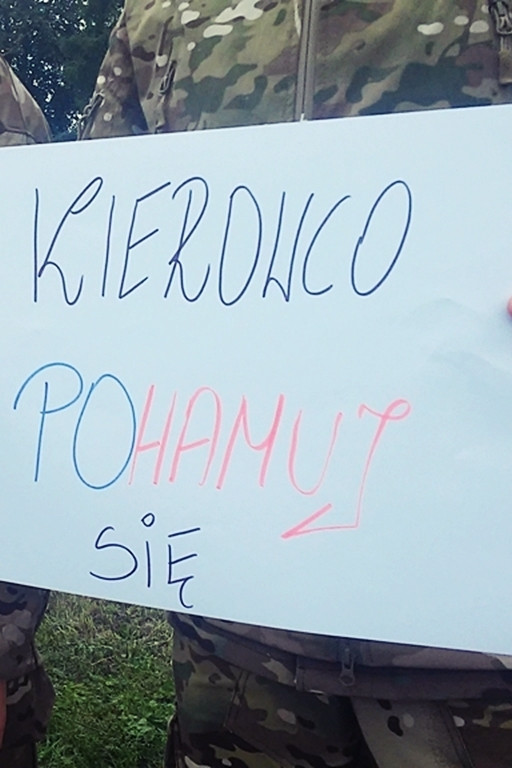 KIEROWCO
POHAMUJ
SIĘ